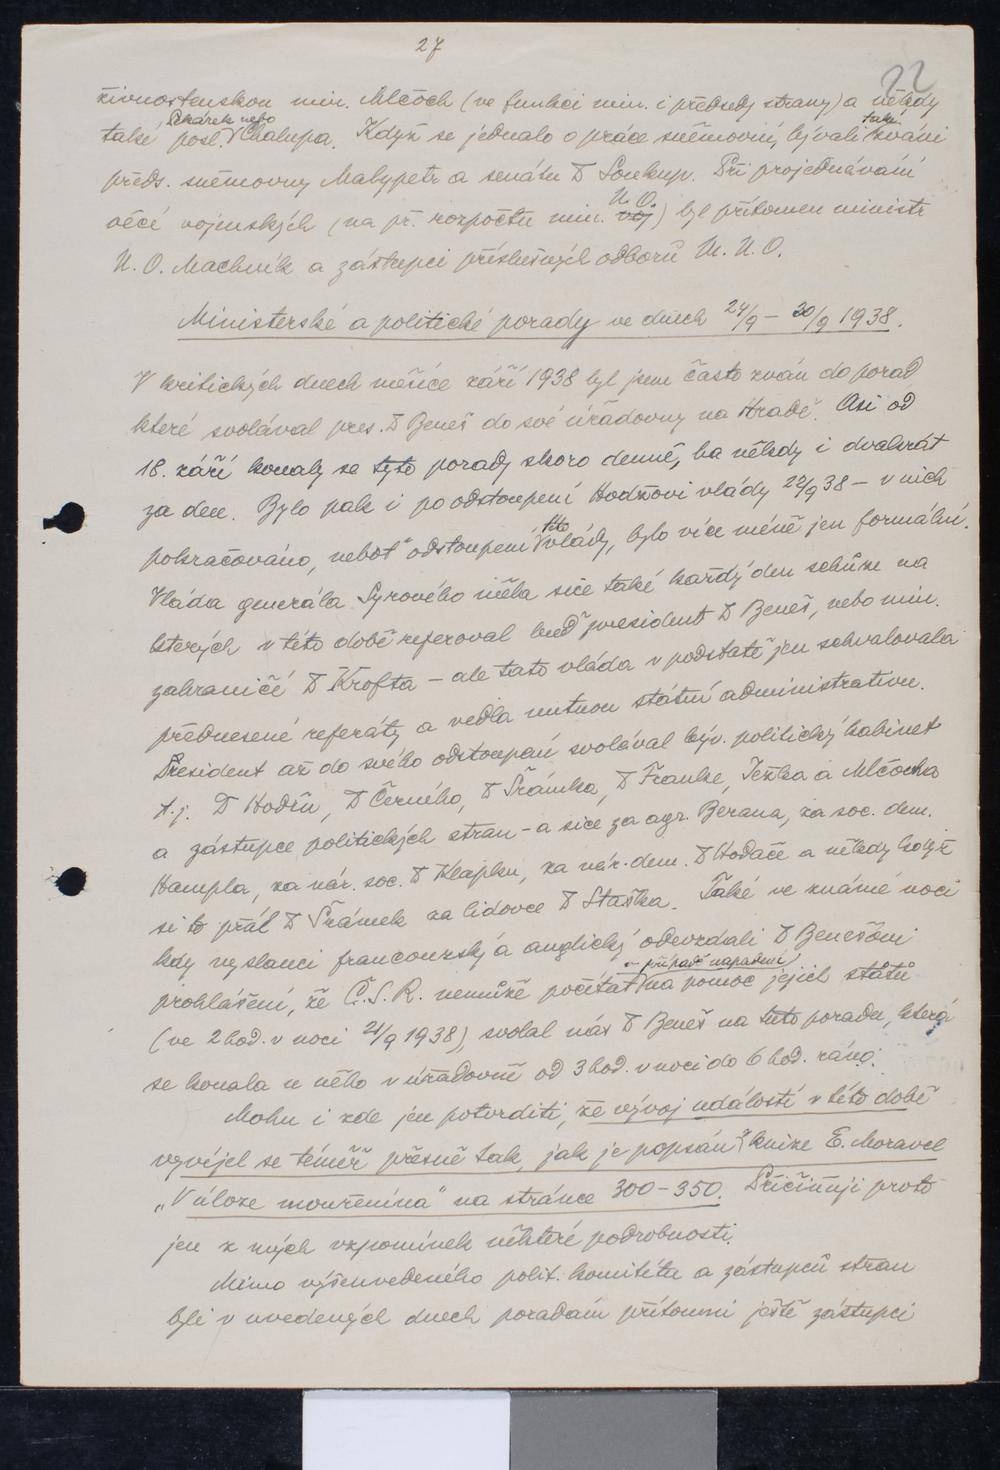 27
22
živnostenskou min. Mlčoch (ve funkci min. i předsedy strany) a někdy
Škárek nebo
také posl. Chalupa. Když se jednalo o práce sněmovní, bývali také zváni
předs. sněmovny Malypetr a senátu Dr Soukup. Při projednávání
věcí vojenských (na př. rozpočtu min. voj N.O.) byl přítomen ministr
N. O. Machník a zástupci příslušných odborů M. N. O.
Ministerské a politické porady ve dnech 24/9 – 30/9 1938.
V kritických dnech měsíce září 1938 byl jsem často zván do porad
které svolával pres. Dr Beneš do své úřadovny na Hradě. Asi od
18. září konaly se tyto porady skoro denně, ba někdy i dvakrát
za den. Bylo pak i po odstoupení Hodžovi vlády 22/9 38 – v nich
pokračováno, neboť odstoupení této vlády, bylo více méně jen formální.
Vláda generála Syrového měla sice také každý den schůze na
kterých v této době referoval buď president Dr Beneš, nebo min.
zahraničí Dr Krofta – ale tato vláda v podstatě jen schvalovala
přednesené referáty a vedla nutnou státní administrativu.
President až do svého odstoupení svolával býv. politický kabinet
t. j. Dr Hodžu, Dr Černého, Dr Šrámka, Dr Franke, Ježka a Mlčocha
a zástupce politických stran – a sice za agr. Berana, za soc. dem.
Hampla, za nár. soc. Dr Klapku, za nár. dem. Dr Hodáče a někdy když
si to přál Dr Šrámek za lidovce Dr Staška. Také ve známé noci
kdy vyslanci francouzský a anglický odevzdali Dr Benešovi
prohlášení, že Č.S.R. nemůže počítat v případě napadení na pomoc jejich států
(ve 2 hod. v noci 21/9 1938), svolal nás Dr Beneš na tuto poradu, která
se konala u něho v úřadovně od 3 hod. v noci do 6 hod. ráno.
Mohu i zde jen potvrditi, že vývoj událostí v této době
vyvíjel se téměř přesně tak, jak je popsán v knize E. Moravce
„V úloze mouřenína" na stránce 300–350. Přičiňuji proto
jen z mých vzpomínek některé podrobnosti.
Mimo výšeuvedeného polit. komitétu a zástupců stran
byli v uvedených dnech poradám přítomni ještě zástupci